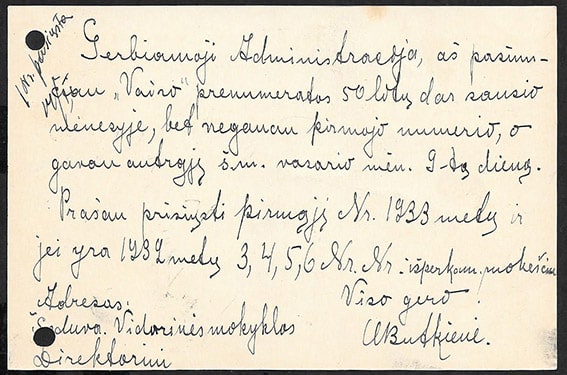 1 Nr. pasiųsta
Gerbiamoji Administracija, aš pasiun-
čiau „Vairo" prenumeratos 50 litų dar sausio
mėnesyje, bet negavau pirmojo numerio, o
gavau antrąjį š.m. vasario mėn. 9-tą dieną.
Prašau prisiųsti pirmąjį Nr. 1933 metų ir
jei yra 1932 metų 3, 4, 5, 6 Nr. Nr. išperkam. mokesčiu
Viso gero.
Adresas:
Šeduva. Vidurinės mokyklos
Direktoriui
Butkienė.